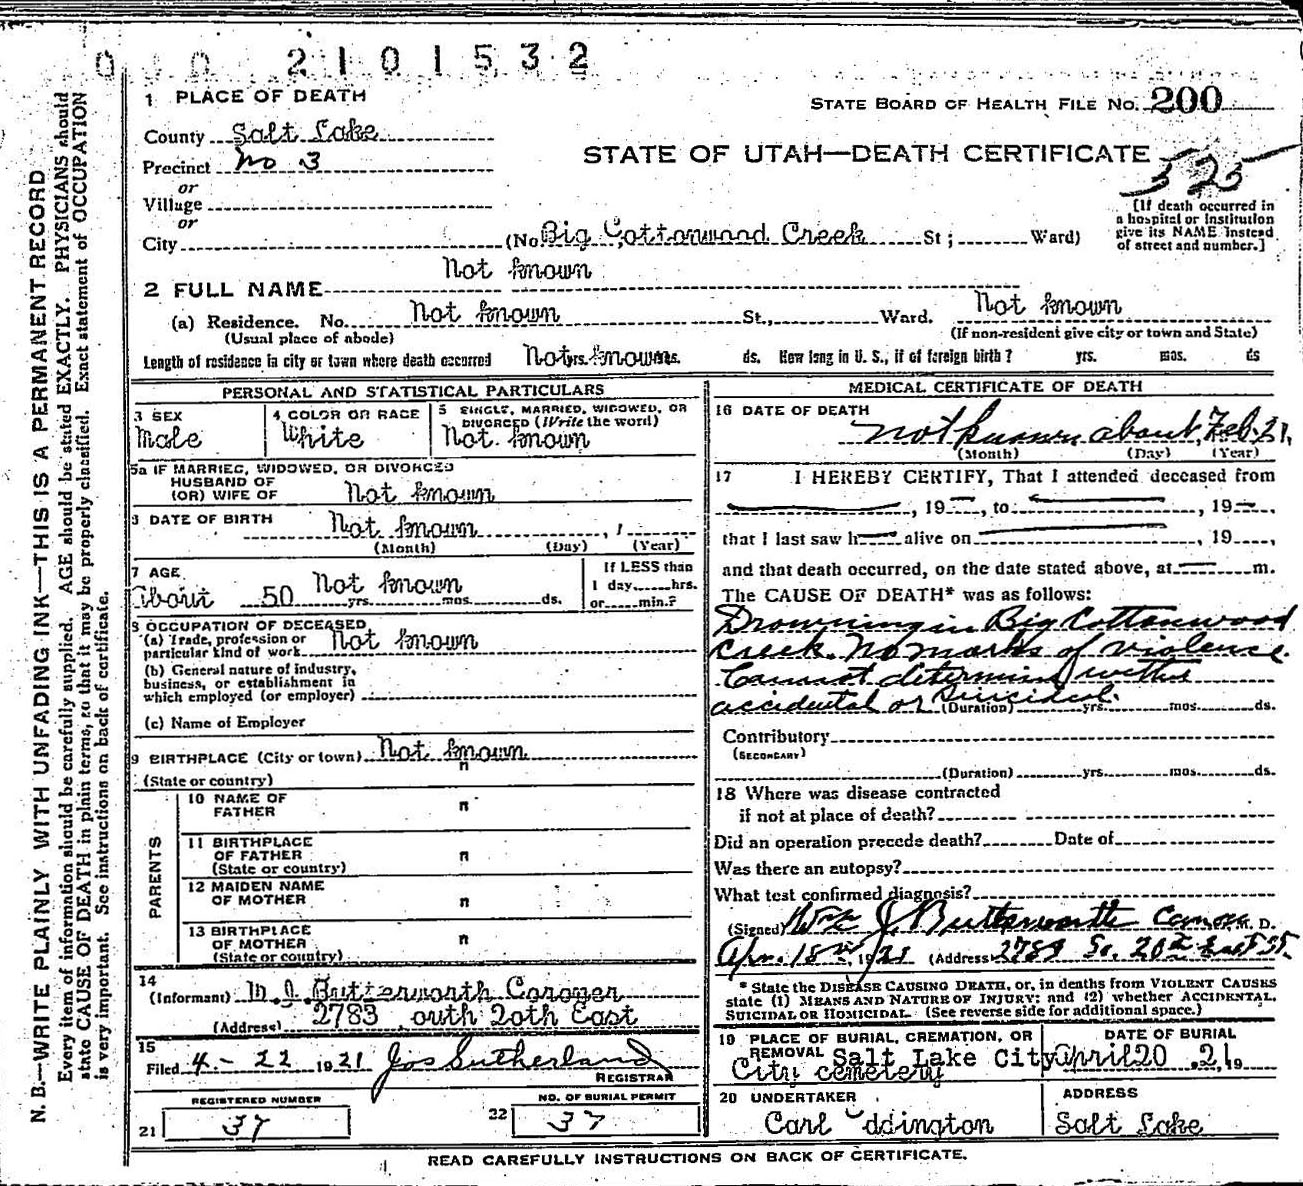 0 0 0 2 1 0 1 5 3 2
1 PLACE OF DEATH
STATE BOARD OF HEALTH FILE NO. 200
County Salt Lake
Precinct No 3
STATE OF UTAH—DEATH CERTIFICATE
525
or
Village
or
[If death occurred in
a hospital or institution
give its NAME instead
of street and number.]
City (No. Big Cottonwood Creek St; Ward)
Not known
2 FULL NAME
(a) Residence. No. Not known St., Ward. Not known
(Usual place of abode) (If non-resident give city or town and State)
Length of residence in city or town where death occurred Not yrs. known mos. ds. How long in U. S., if of foreign birth? yrs. mos. ds
PERSONAL AND STATISTICAL PARTICULARS
3 SEX
Male
4 COLOR OR RACE
White
5 SINGLE, MARRIED, WIDOWED, OR
DIVORCED (Write the word)
Not known
5a IF MARRIED, WIDOWED, OR DIVORCED
HUSBAND OF
(OR) WIFE OF Not known
3 DATE OF BIRTH Not known , 1
(Month) (Day) (Year)
7 AGE Not known
About 50 yrs. mos. ds.
If LESS than
1 day, hrs.
or min.?
8 OCCUPATION OF DECEASED
(a) Trade, profession or
particular kind of work Not known
(b) General nature of industry,
business, or establishment in
which employed (or employer)
(c) Name of Employer
9 BIRTHPLACE (City or town) Not known
(State or country) "
PARENTS
10 NAME OF
FATHER "
11 BIRTHPLACE
OF FATHER "
(State or country)
12 MAIDEN NAME
OF MOTHER "
13 BIRTHPLACE
OF MOTHER "
(State or country)
14
(Informant) M J Butterworth Coroner
(Address) 2783 outh 20th East
15
Filed 4-22 1921 Jos Sutherland
REGISTRAR
REGISTERED NUMBER
21 37
NO. OF BURIAL PERMIT
22 37
MEDICAL CERTIFICATE OF DEATH
16 DATE OF DEATH
not known about Feb. 21.
(Month) (Day) (Year)
17 I HEREBY CERTIFY, That I attended deceased from
, 19 , to , 19
that I last saw h alive on , 19 ,
and that death occurred, on the date stated above, at m.
The CAUSE OF DEATH* was as follows:
Drowning in Big Cottonwood
Creek. No marks of violence.
Cannot determine wether
accidental or Suicidal.
(Duration) yrs. mos. ds.
Contributory
(SECONDARY)
(Duration) yrs. mos. ds.
18 Where was disease contracted
if not at place of death?
Did an operation precede death? Date of
Was there an autopsy?
What test confirmed diagnosis?
(Signed) J. Butterworth M. D.
Apr. 18 1921 (Address) 2789 So. 20th East St.
* State the DISEASE CAUSING DEATH, or, in deaths from VIOLENT CAUSES
state (1) MEANS AND NATURE OF INJURY; and (2) whether ACCIDENTAL,
SUICIDAL OR HOMICIDAL. (See reverse side for additional space.)
19 PLACE OF BURIAL, CREMATION, OR
REMOVAL Salt Lake City
City cemetery
DATE OF BURIAL
April 20 , 21, 19
20 UNDERTAKER
Carl ddington
ADDRESS
Salt Lake
READ CAREFULLY INSTRUCTIONS ON BACK OF CERTIFICATE.
N. B.—WRITE PLAINLY WITH UNFADING INK—THIS IS A PERMANENT RECORD
Every item of information should be carefully supplied. AGE should be stated EXACTLY. PHYSICIANS should
state CAUSE OF DEATH in plain terms, so that it may be properly classified. Exact statement of OCCUPATION
is very important. See instructions on back of certificate.